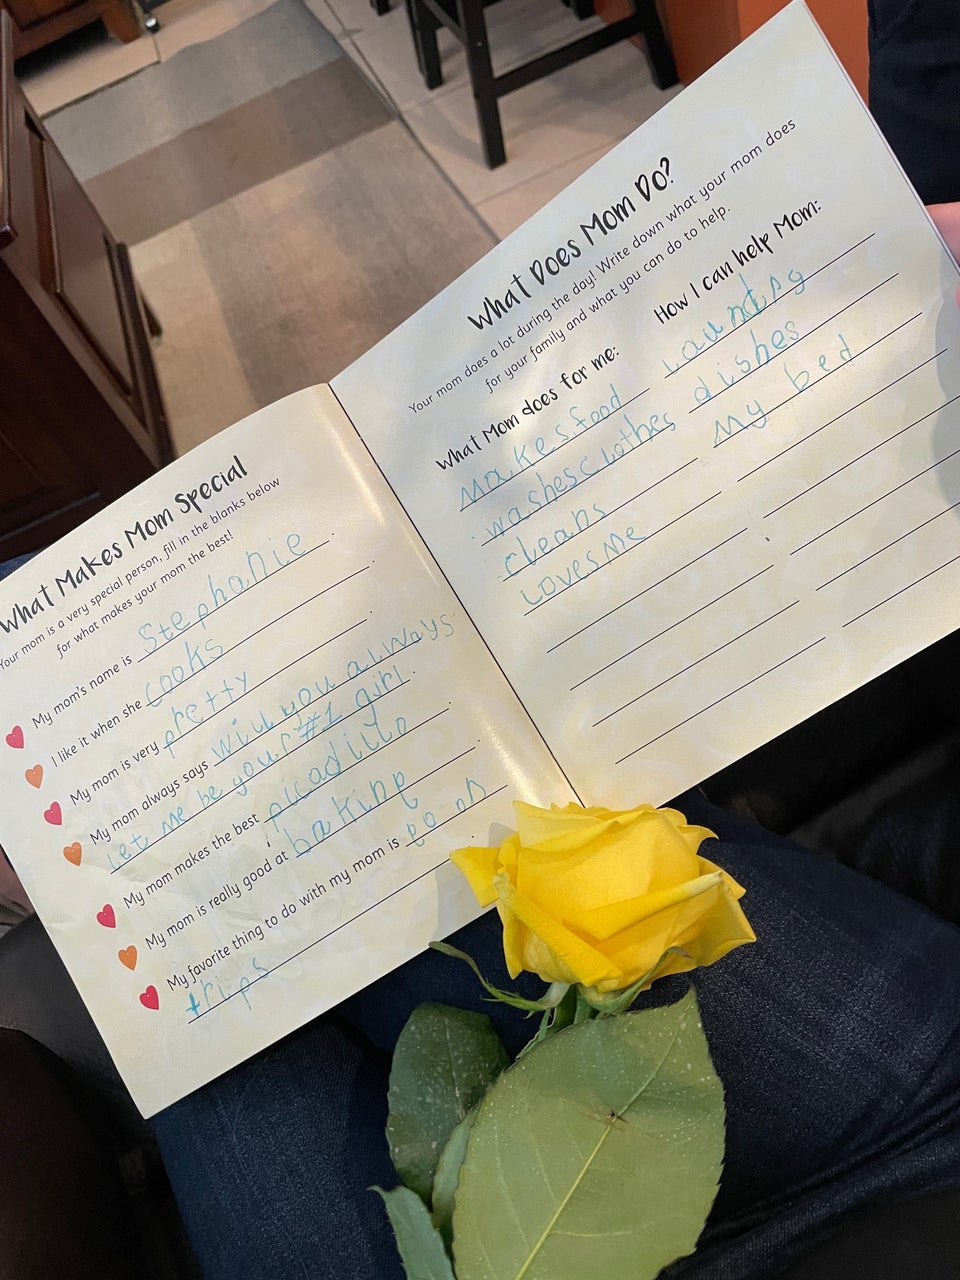 What Makes Mom Special
Your mom is a very special person, fill in the blanks below
for what makes your mom the best!
My mom's name is Stephanie.
I like it when she cooks.
My mom is very pretty.
My mom always says will you always
let me be your #1 girl.
My mom makes the best picadillo.
My mom is really good at baking.
My favorite thing to do with my mom is go on
trips.
What Does Mom Do?
Your mom does a lot during the day! Write down what your mom does
for your family and what you can do to help.
What Mom does for me:
makes food
washes clothes
cleans
Loves Me
How I can help Mom:
dishes
My bed